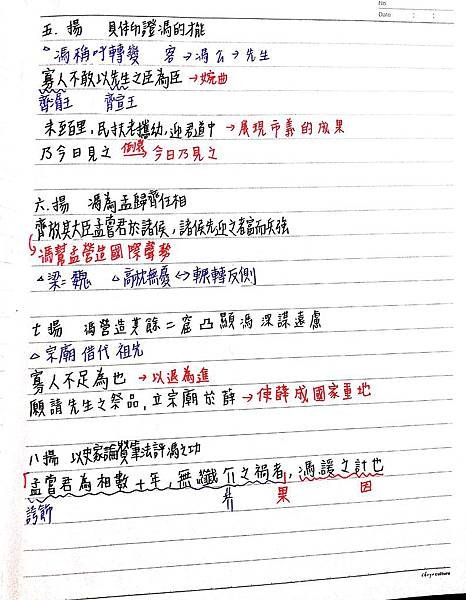 No
Date : :
五. 揚 具体印證馮的才能
△馮稱呼轉變 客→馮公→先生
寡人不敢以先生之臣為臣→婉曲
齊湣王 齊宣王
未至百里,民扶老攜幼,迎君道中→展現市義的成果
乃今日見之 倒裝→今日乃見之
六. 揚 馮為孟歸齊任相
齊放其大臣孟嘗君於諸侯,諸侯先迎之者富而兵強
馮幫孟營造國際聲勢
△梁=魏 △高枕無憂↔輾轉反側
七 揚 馮營造其餘二窟 凸顯馮深謀遠慮
△宗廟借代祖先
寡人不足為也→以退為進
願請先生之祭品,立宗廟於薛→使薛成國家重地
八 揚 以史家論贊筆法評馮之功
孟嘗君為相數十年,無纖介之禍者,馮諼之計也
誇飾 芥 果 因